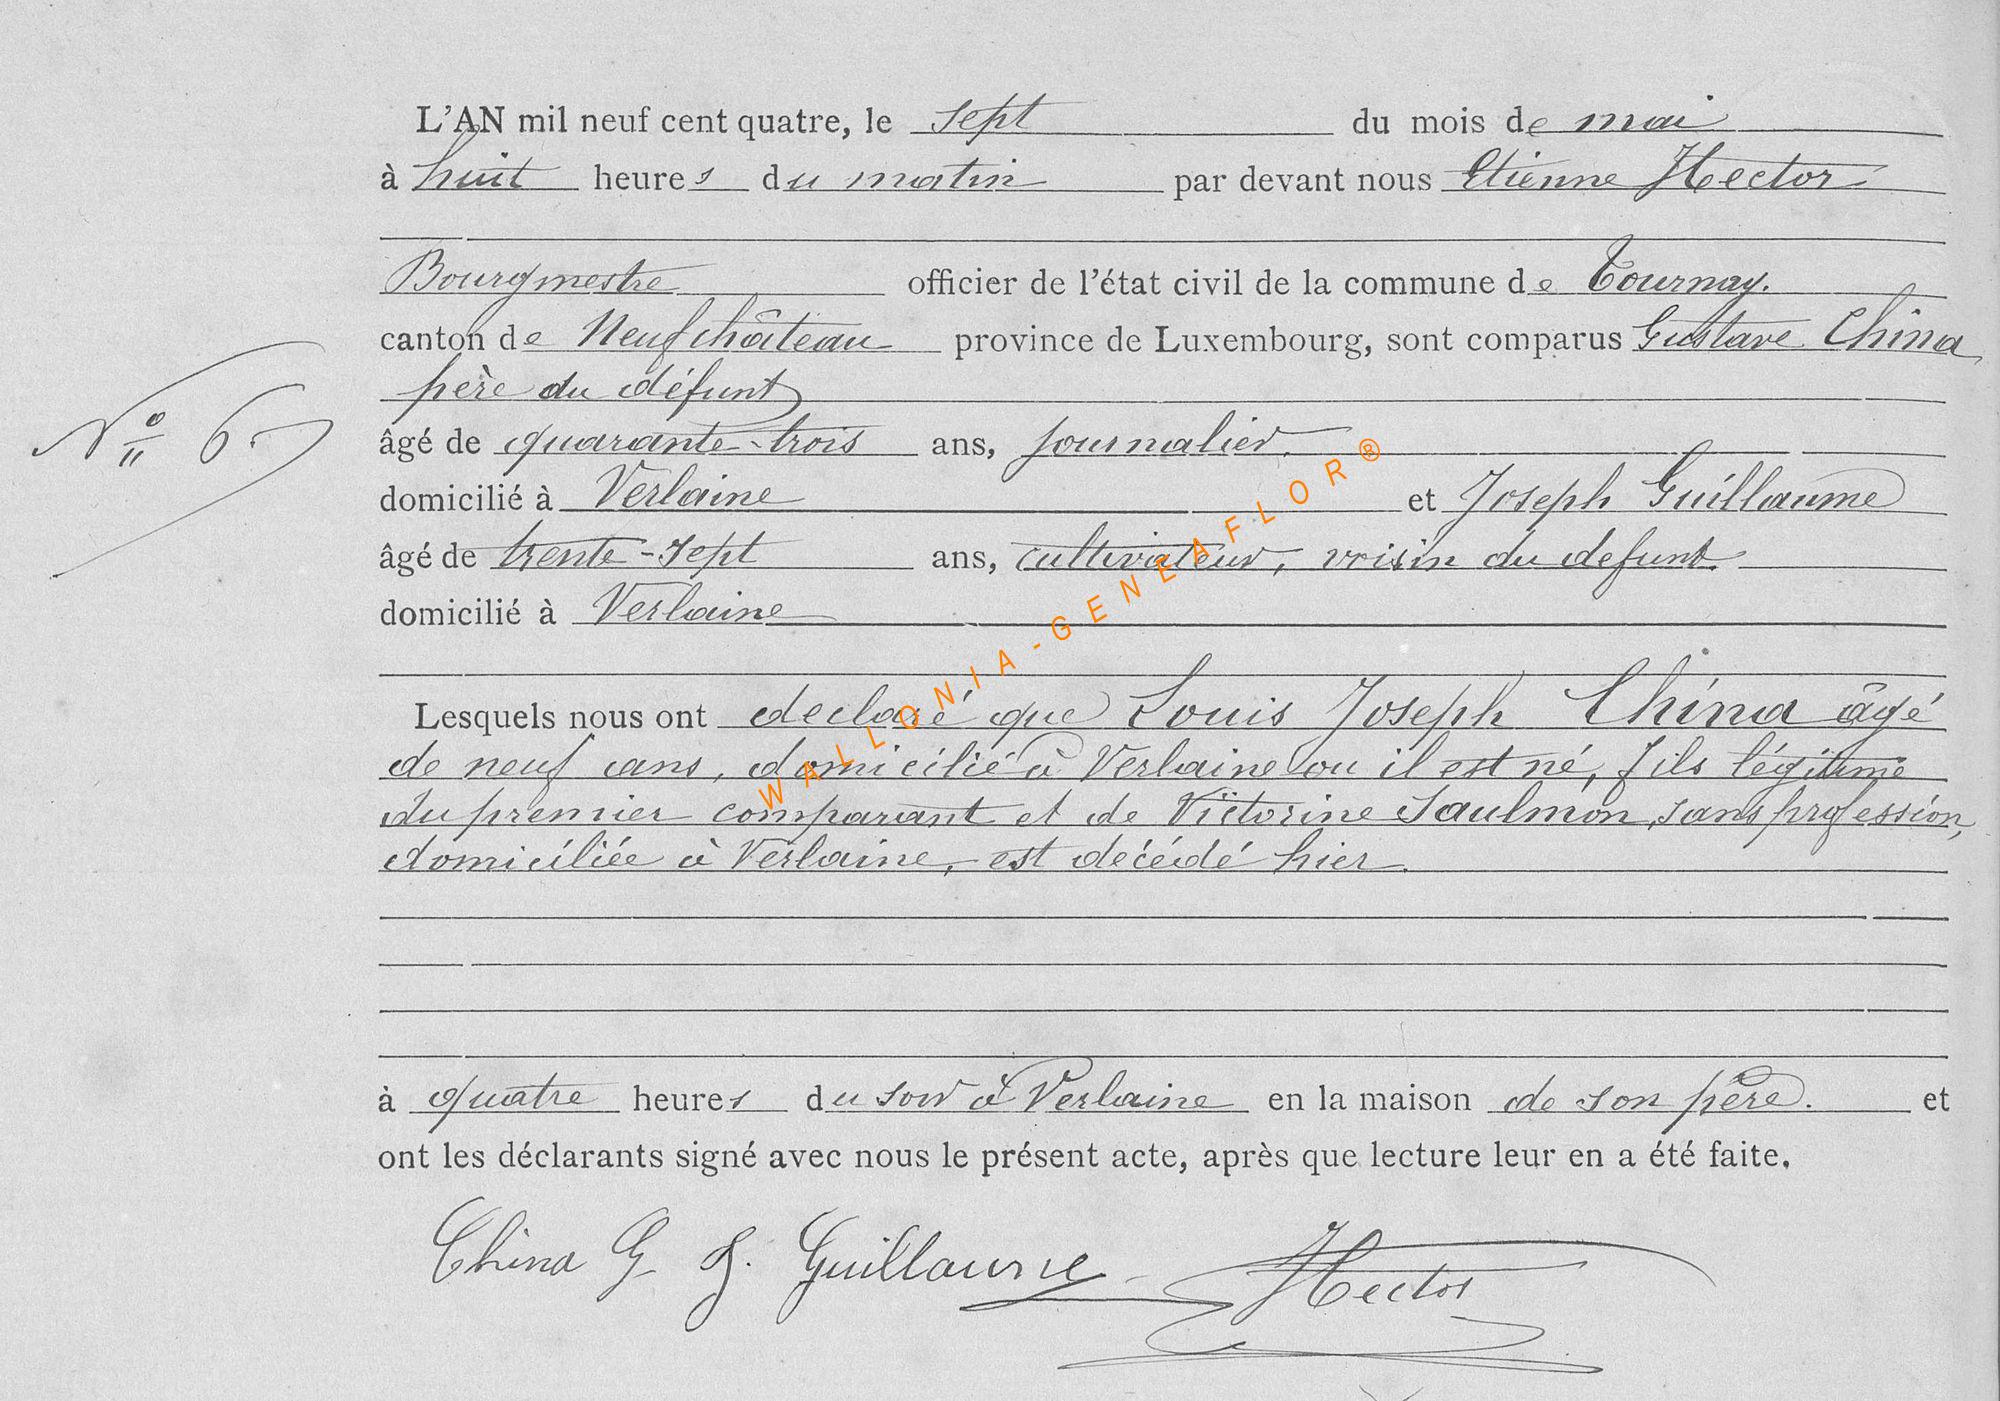 L'AN mil neuf cent quatre, le sept du mois de mai
à huit heures du matin par devant nous Etienne Hector
Bourgmestre officier de l'état civil de la commune de Tournay.
canton de Neufchâteau province de Luxembourg, sont comparus Gustave China
père du défunt
N° 6.
âgé de quarante-trois ans, journalier.
domicilié à Verlaine et Joseph Guillaume
âgé de trente-sept ans, cultivateur, voisin du defunt.
domicilié à Verlaine
WALLONIA-GENEAFLOR®
Lesquels nous ont declaré que Louis Joseph China âgé
de neuf ans, domicilié à Verlaine ou il est né, fils légitime
du premier comparant et de Victorine Saulmon, sans profession,
domiciliée à Verlaine, est décédé hier.
à quatre heures du soir à Verlaine en la maison de son père. et
ont les déclarants signé avec nous le présent acte, après que lecture leur en a été faite.
China G J. Guillaume Hector